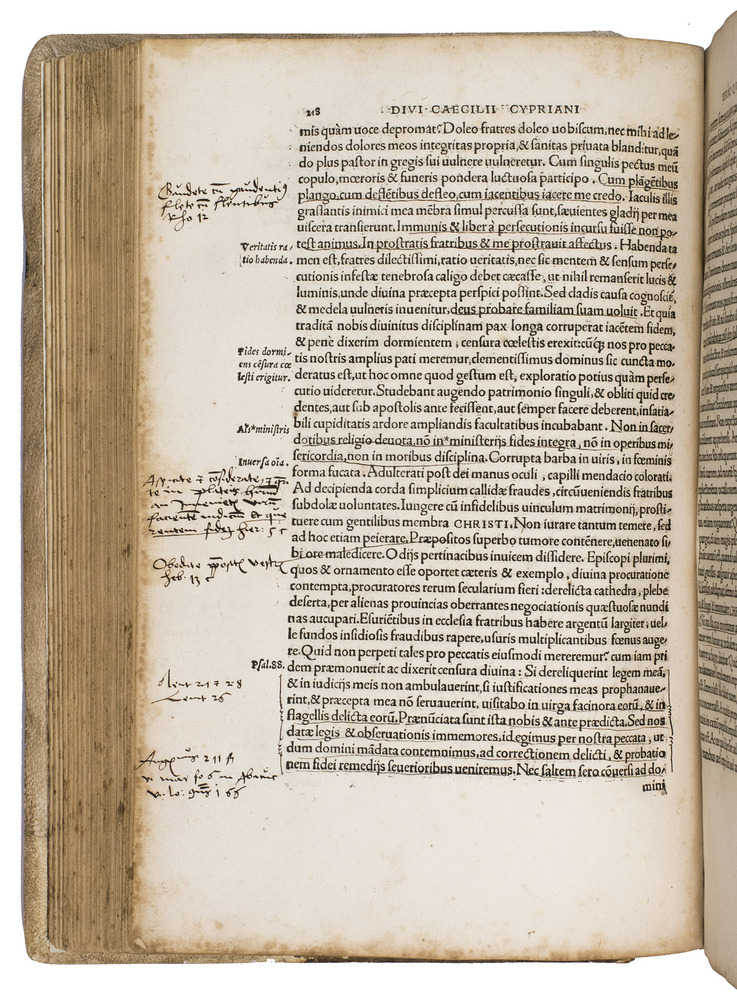 218 DIVI CAECILII CYPRIANI
mis quàm uoce depromat? Doleo fratres doleo uobiscum, nec mihi ad le-
niendos dolores meos integritas propria, & sanitas priuata blanditur, quā
do plus pastor in gregis sui uulnere uulneretur. Cum singulis pectus meū
copulo, mœroris & funeris pondera luctuosa participo. Cum plāgētibus
plango, cum deflētibus defleo, cum iacentibus iacere me credo. Iaculis illis
grassantis inimici mea mēbra simul percussa sunt, sæuientes gladij per mea
uiscera transierunt. Immunis & liber à persecutionis incursu fuisse non po-
test animus. In prostratis fratribus & me prostrauit affectus. Habenda ta
men est, fratres dilectissimi, ratio ueritatis, nec sic mentem & sensum perse-
cutionis infestæ tenebrosa caligo debet cæcasse, ut nihil remanserit lucis &
luminis, unde diuina præcepta perspici possint. Sed cladis causa cognoscit,
& medela uulneris inuenitur, deus probare familiam suam uoluit. Et quia
traditā nobis diuinitus disciplinam pax longa corruperat iacētem fidem,
& penè dixerim dormientem, censura cœlestis erexit: cūq; nos pro pecca-
tis nostris amplius pati meremur, clementissimus dominus sic cuncta mo-
deratus est, ut hoc omne quod gestum est, exploratio potius quàm perse-
cutio uideretur. Studebant augendo patrimonio singuli, & obliti quid cre
dentes, aut sub apostolis ante fecissent, aut semper facere deberent, insatia-
bili cupiditatis ardore ampliandis facultatibus incubabant. Non in sacer-
dotibus religio deuota, nō in *ministerijs fides integra, nō in operibus mi-
sericordia, non in moribus disciplina. Corrupta barba in uiris, in fœminis
forma fucata. Adulterati post dei manus oculi, capilli mendacio colorati.
Ad decipienda corda simplicium callidæ fraudes, circūueniendis fratribus
subdolæ uoluntates. Iungere cū infidelibus uinculum matrimonij, prosti-
tuere cum gentilibus membra CHRISTI. Non iurare tantum temere, sed
ad hoc etiam peierare. Præpositos superbo tumore contēnere, uenenato si-
bi ore maledicere. Odijs pertinacibus inuicem dissidere. Episcopi plurimi,
quos & ornamento esse oportet cæteris & exemplo, diuina procuratione
contempta, procuratores rerum secularium fieri: derelicta cathedra, plebe
deserta, per alienas prouincias oberrantes negociationis quæstuosæ nundi
nas aucupari. Esuriētibus in ecclesia fratribus habere argentū largiter, uel-
le fundos insidiosis fraudibus rapere, usuris multiplicantibus fœnus auge-
re. Quid non perpeti tales pro peccatis eiusmodi mereremur? cum iam pri
dem præmonuerit ac dixerit censura diuina: Si dereliquerint legem meā,
& in iudicijs meis non ambulauerint, si iustificationes meas prophanaue-
rint, & præcepta mea nō seruauerint, uisitabo in uirga facinora eorū, & in
flagellis delicta eorū. Prænūciata sunt ista nobis & ante prædicta. Sed nos
datæ legis & obseruationis immemores, id egimus per nostra peccata, ut
dum domini mādata contemnimus, ad correctionem delicti, & probatio
nem fidei remedijs seuerioribus ueniremus. Nec saltem sero cōuersi ad do-
mini
Gaudete cū gaudentib9
flete cū flentibus
Rho 12
Veritatis ra-
tio habenda.
Fides dormi-
ens cēsura cœ
lesti erigitur.
Al* ministris
Inuersa oīa.
Obedite
heb. 13
Psal. 88.
Leuit 26